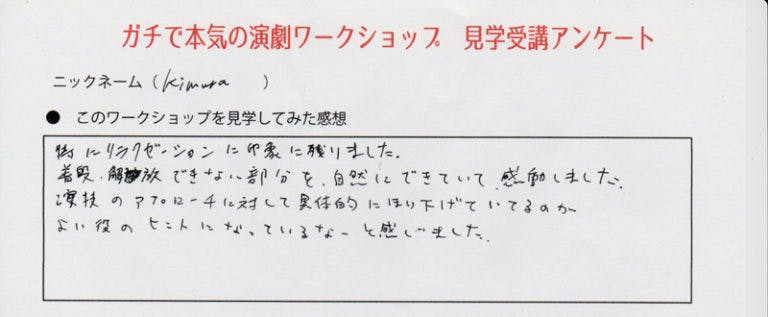 ガチで本気の演劇ワークショップ 見学受講アンケート
ニックネーム（Kimura ）
● このワークショップを見学してみた感想
特にリラクゼーションに印象に残りました。
普段、解放できない部分を、自然にできていて、感動しました。
演技のアプローチに対して具体的にほり下げていてるのが
よい役のヒントになっているなーと感じました。